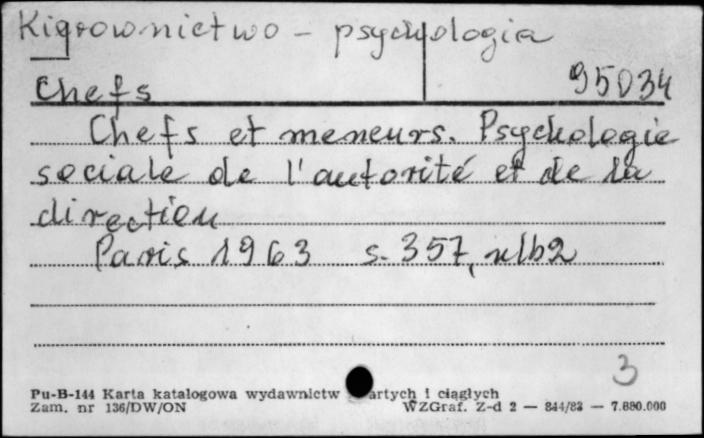 Kierownictwo - psychologia
Chefs 95034
Chefs et meneurs. Psychologie
sociale de l'autorité et de la
direction
Paris 1963 s. 357, nlb2
3
Pu-B-144 Karta katalogowa wydawnictw artych i ciągłych
Zam. nr 136/DW/ON WZGraf. Z-d 2 — 844/83 — 7.880.000